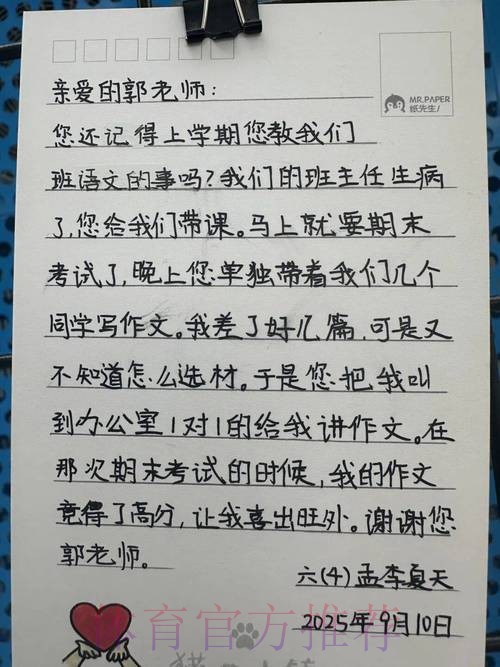 MR.PAPER
纸先生/
亲爱的郭老师：
您还记得上学期您教我们
班语文的事吗？我们的班主任生病
了，您给我们带课。马上就要期末
考试了，晚上您单独带着我们几个
同学写作文。我差了好几篇，可是又
不知道怎么选材。于是您把我叫
到办公室1对1的给我讲作文。在
那次期末考试的时候，我的作文
竟得了高分，让我喜出旺外。谢谢您
郭老师。
六(4)孟李夏天
2025年9月10日
体育官方推荐